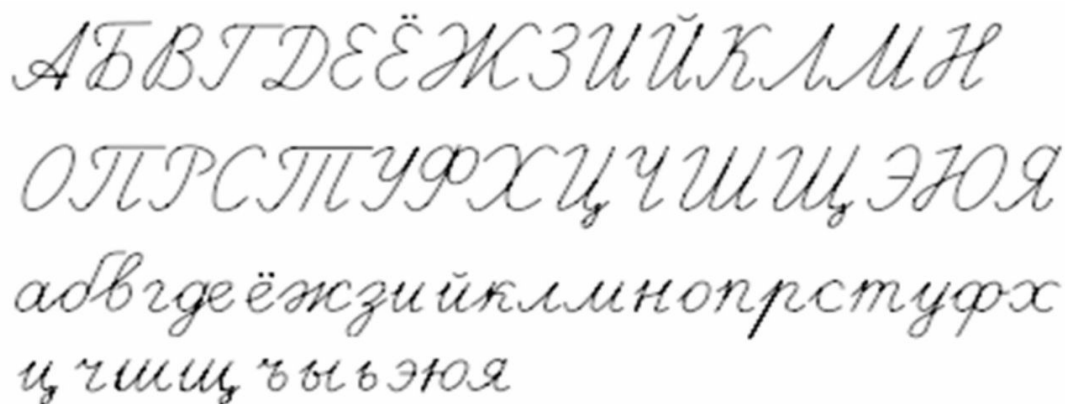 АБВГДЕЁЖЗИЙКЛМН
ОПРСТУФХЦЧШЩЭЮЯ
абвгдеёжзийклмнопрстуфх
цчшщъыьэюя